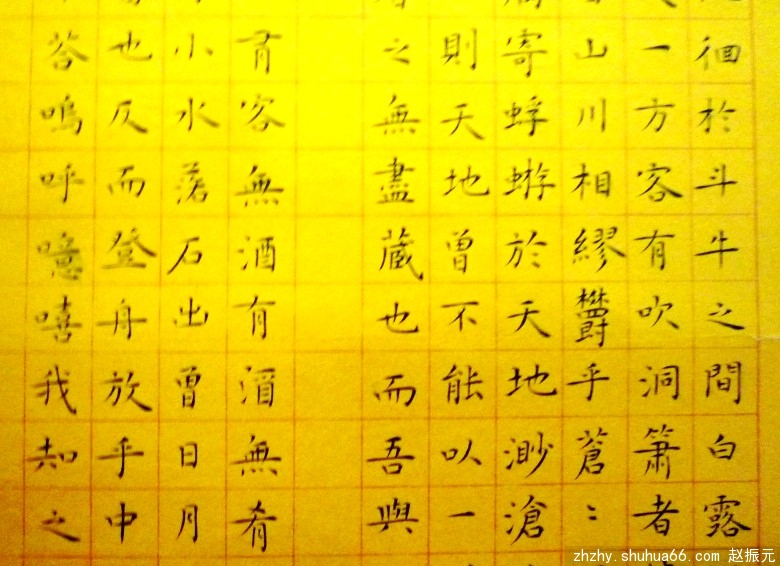 徊於斗牛之間白露
一方客有吹洞簫者
山川相繆鬱乎蒼〻
寄蜉蝣於天地渺滄
則天地曾不能以一
之無盡藏也而吾與
有客無酒有酒無肴
小水落石出曾日月
也反而登舟放乎中
荅嗚呼噫嘻我知之
zhzhy.shuhua66.com 赵振元